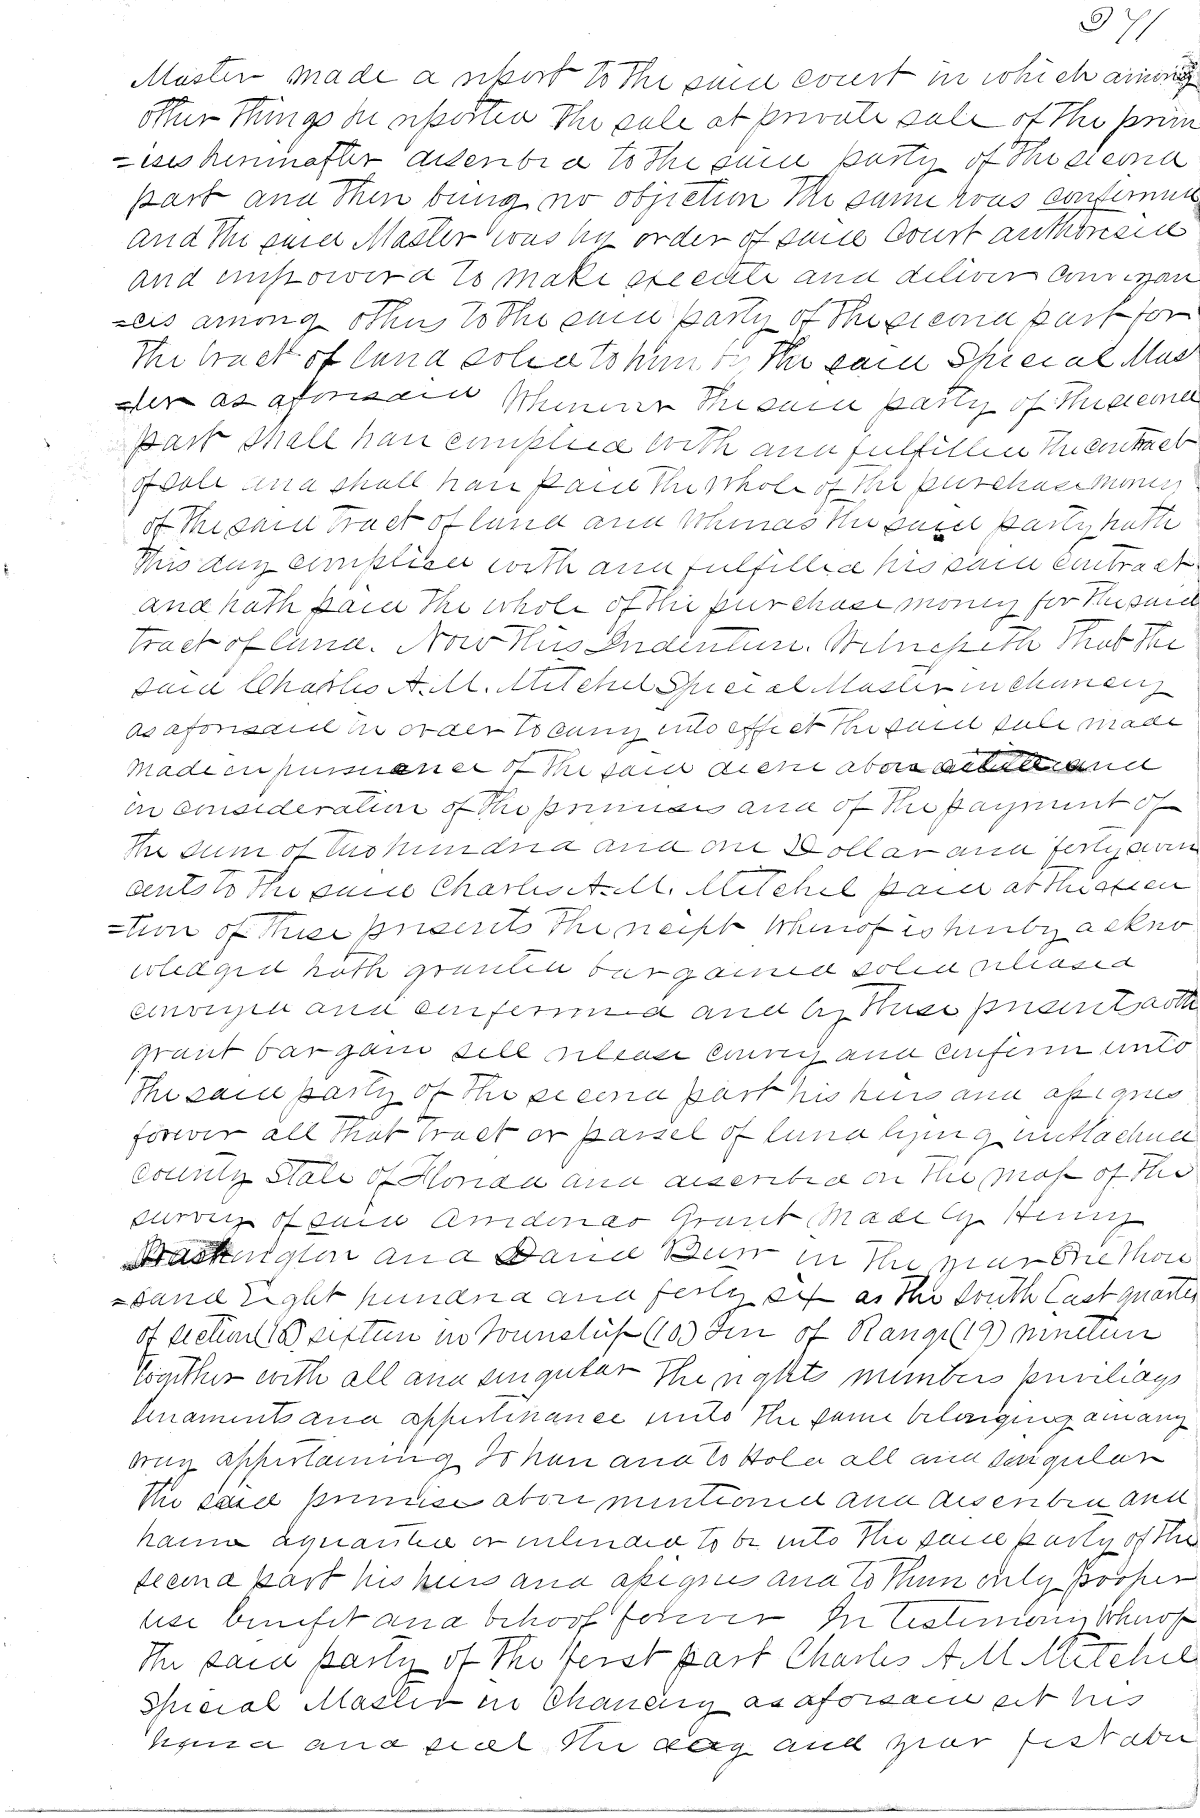 371
Master made a report to the said court in which among
other things he reported the sale at private sale of the prem
=ises hereinafter described to the said party of the second
part and there being no objection the same was confirmed
and the said Master was by order of said Court authorised
and empowered to make execute and deliver conveyan
=ces among others to the said party of the second part for
the tract of land sold to him by the said Special Mas
=ter as aforesaid Whenever the said party of the second
part shall have complied with and fulfilled the contract
of sale and shall have paid the whole of the purchase money
of the said tract of land and whereas the said party hath
this day complied with and fulfilled his said contract
and hath paid the whole of the purchase money for the said
tract of land. Now this Indenture. Witnesseth that the
said Charles A. M. Mitchel Special Master in chancery
as aforesaid in order to carry into effect the said sale made
made in pursuance of the said decree above and
in consideration of the premises and of the payment of
the sum of two hundred and one Dollar and forty seven
cents to the said Charles A. M. Mitchel paid at the execu
=tion of these presents the receipt whereof is hereby ackno
wledged hath granted bargained sold released
conveyed and confirmed and by these presents doth
grant bargain sell release convey and confirm unto
the said party of the second part his heirs and assignes
forever all that tract or parsel of land lying in Alachua
county State of Florida and described on the map of the
survey of said Arredondo Grant made by Henry
Washington and David Burr in the year One thou
=sand Eight hundred and forty six as the South East quarter
of section (16) sixteen in Township (10) Ten of Range (19) nineteen
together with all and singular the rights members priviliags
tenaments and appertinance unto the same belonging or in any
way appertaining To have and to Hold all and singular
the said premises above mentioned and described and
granted or intended to be unto the said party of the
second part his heirs and assignes and to their only prooper
use benefit and behoof forever In testimony whereof
the said party of the ferst part Charles A M Mitchel
Special Master in Chancery as aforesaid set his
hand and seal the day and year first abov